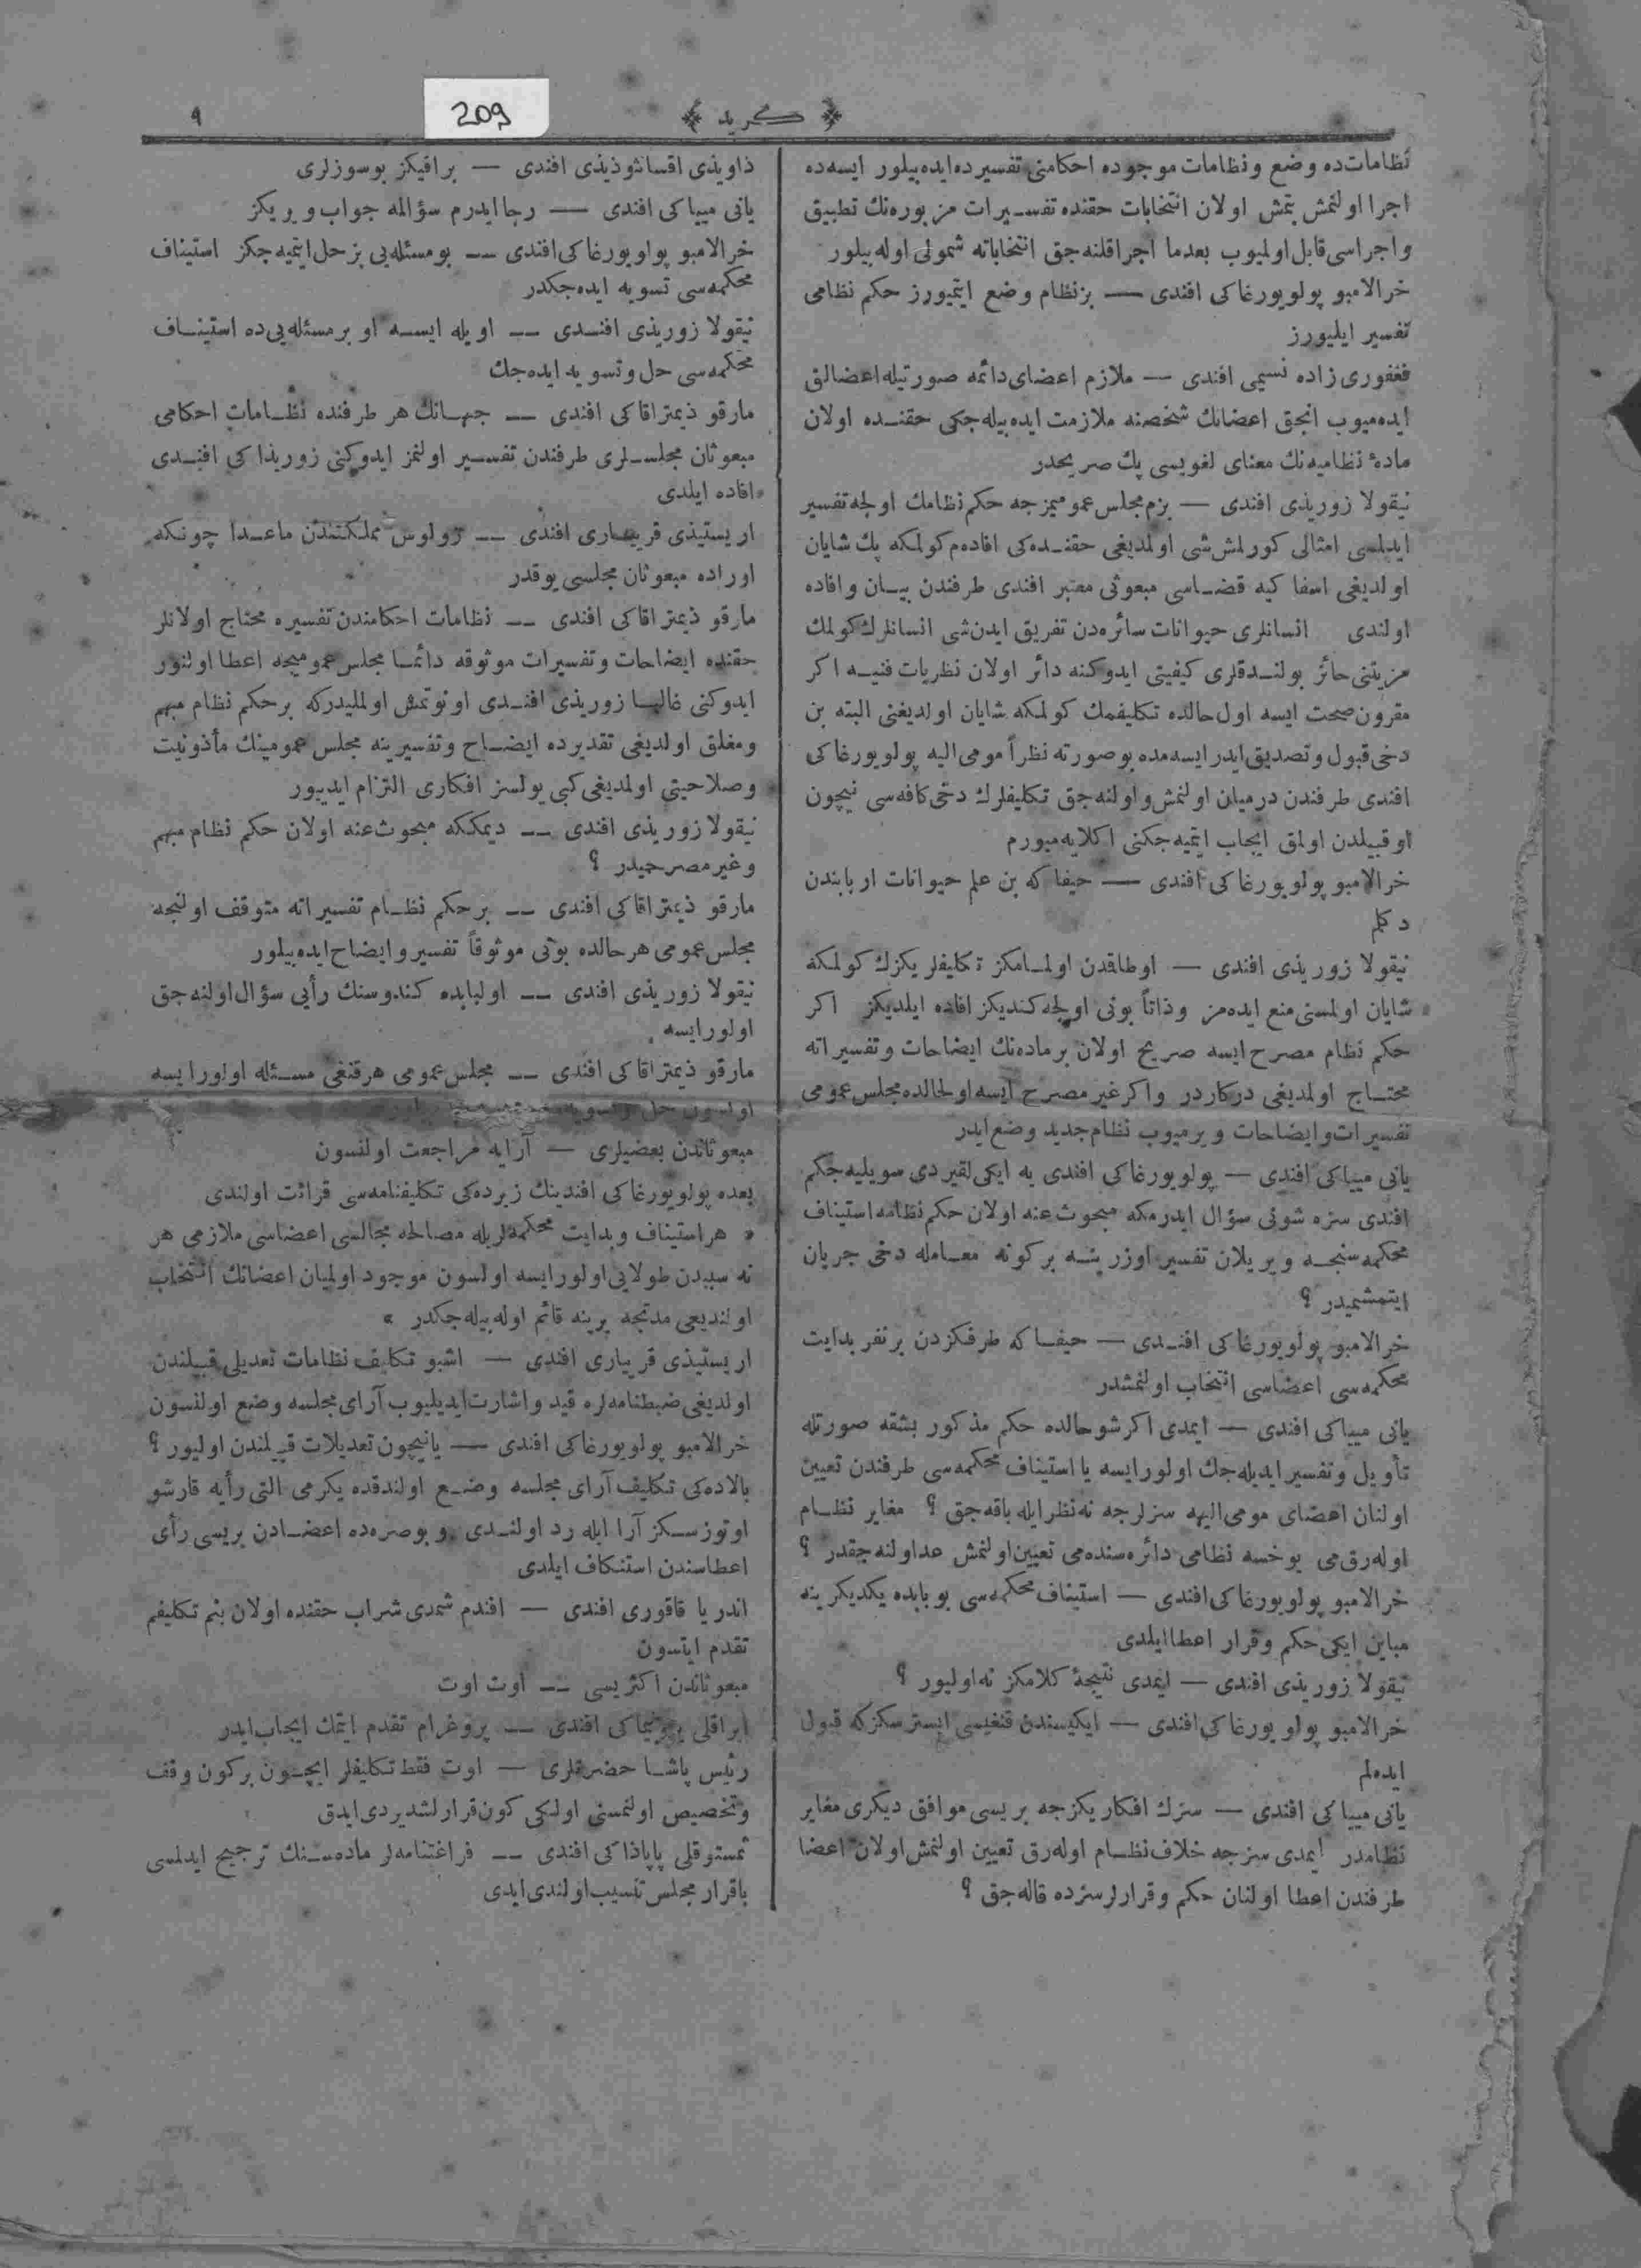 ٩
209
﴿ كريد ﴾
نظامات‌ده وضع ونظامات موجوده احكامنى تفسيرده ايده‌بيلور ايسه‌ده
اجرا اولنمش بتمش اولان انتخابات حقنده تفسيرات مزبوره‌نك تطبيق
واجراسى قابل اولميوب بعدما اجرا قلنه‌جق انتخاباته شمولى اوله‌بيلور
خرالامبو پولويورغاكى افندى — بز نظام وضع ايتميورز حكم نظامى
تفسير ايليورز
فغفورى زاده نسيمى افندى — ملازم اعضاى دائمه صورتيله اعضالق
ايده‌ميوب انجق اعضانك شخصنه ملازمت ايده‌بيله‌جكى حقنده اولان
مادۀ نظاميه‌نك معناى لغويسى پك صريحدر
نيقولا زوريذى افندى — بزم مجلس عموميمزجه حكم نظامك اولجه تفسير
ايدلمسى امثالى كورلمش شى اولمديغى حقنده‌كى افاده‌م كولمكه پك شايان
اولديغى اسفاكيه قضاسى مبعوثى معتبر افندى طرفندن بيان وافاده
اولندى انسانلرى حيوانات سائره‌دن تفريق ايدن شى انسانلرك كولمك
مزيتنى حائز بولندقلرى كيفيتى ايدوكنه دائر اولان نظريات فنيه اكر
مقرون صحت ايسه اول حالده تكليفمك كولمكه شايان اولديغنى البته بن
دخى قبول وتصديق ايدر ايسه‌مده بو صورته نظراً مومى اليه پولويورغاكى
افندى طرفندن درميان اولنمش واولنه‌جق تكليفلرك دخى كافه‌سى نيچون
او قبيلدن اولمق ايجاب ايتميه‌جكنى اكلايه‌ميورم
خرالامبو پولويورغاكى افندى — حيفا كه بن علم حيوانات اربابندن
دكلم
نيقولا زوريذى افندى — اوطاقدن اولمامكز تكليفلريكزك كولمكه
شايان اولمسنى منع ايده‌مز وذاتاً بونى اولجه كنديكز افاده ايلديكز اكر
حكم نظام مصرح ايسه صريح اولان بر ماده‌نك ايضاحات وتفسيراته
محتاج اولمديغى دركاردر واكر غير مصرح ايسه اولحالده مجلس عمومى
تفسيرات وايضاحات ويرميوب نظام جديد وضع ايدر
يانى ميياكى افندى — پولويورغاكى افندى يه ايكى لقيردى سويليه‌جكم
افندى سزه شونى سؤال ايدرمكه مبحوث عنه اولان حكم نظامه استيناف
محكمه‌سنجه ويريلان تفسير اوزرينه بر كونه معامله دخى جريان
ايتمشميدر ؟
خرالامبو پولويورغاكى افندى — حيفا كه طرفكزدن بر نفر بدايت
محكمه‌سى اعضاسى انتخاب اولنمشدر
يانى ميياكى افندى — ايمدى اكر شو حالده حكم مذكور بشقه صورتله
تأويل وتفسير ايديله‌جك اولور ايسه يا استيناف محكمه‌سى طرفندن تعيين
اولنان اعضاى مومى اليهه سزلرجه نه نظرايله باقه‌جق ؟ مغاير نظام
اوله‌رق‌مى يوخسه نظامى دائره‌سنده‌مى تعيين اولنمش عد اولنه‌جقدر ؟
خرالامبو پولويورغاكى افندى — استيناف محكمه‌سى بو بابده يكديكرينه
مباين ايكى حكم وقرار اعطا ايلدى
نيقولا زوريذى افندى — ايمدى نتيجۀ كلامكز نه اوليور ؟
خرالامبو پولويورغاكى افندى — ايكيسندن قنغيسى ايسترسكزكه قبول
ايده‌لم
يانى ميياكى افندى — سزك افكاريكزجه بريسى موافق ديكرى مغاير
نظامدر ايمدى سزجه خلاف نظام اوله‌رق تعيين اولنمش اولان اعضا
طرفندن اعطا اولنان حكم وقرارلر سزده قاله‌جق ؟
ذاويذى اقسانثوذيذى افندى — براقيكز بو سوزلرى
يانى ميياكى افندى — رجا ايدرم سؤالمه جواب ويريكز
خرالامبو پولويورغاكى افندى — بو مسئله‌يى بز حل ايتميه‌جكز استيناف
محكمه‌سى تسويه ايده‌جكدر
نيقولا زوريذى افندى — اويله ايسه او بر مسئله‌يى‌ده استيناف
محكمه‌سى حل وتسويه ايده‌جك
مارقو ذيمتراقاكى افندى — جهانك هر طرفنده نظامات احكامى
مبعوثان مجلسلرى طرفندن تفسير اولنمز ايدوكنى زوريذاكى افندى
افاده ايلدى
اريستيذى قريارى افندى — زولوس مملكتندن ماعدا چونكه
اوراده مبعوثان مجلسى يوقدر
مارقو ذيمتراقاكى افندى — نظامات احكامندن تفسيره محتاج اولانلر
حقنده ايضاحات وتفسيرات موثوقه دائما مجلس عموميجه اعطا اولنور
ايدوكنى غالبا زوريذى افندى اونوتمش اولمليدركه بر حكم نظام مبهم
ومغلق اولديغى تقديرده ايضاح وتفسيرينه مجلس عمومينك مأذونيت
وصلاحيتى اولمديغى كبى يولسز افكارى التزام ايدييور
نيقولا زوريذى افندى — ديمككه مبحوث عنه اولان حكم نظام مبهم
وغير مصرحميدر ؟
مارقو ذيمتراقاكى افندى — بر حكم نظام تفسيراته متوقف اولنجه
مجلس عمومى هر حالده بونى موثوقاً تفسير وايضاح ايده‌بيلور
نيقولا زوريذى افندى — اولبابده كندوسنك رأيى سؤال اولنه‌جق
اولور ايسه
مارقو ذيمتراقاكى افندى — مجلس عمومى هر قنغى مسئله اولور ايسه
اولسون حل وتسويه
مبعوثاندن بعضيلرى — آرايه مراجعت اولنسون
بعده پولويورغاكى افندينك زيرده‌كى تكليفنامه‌سى قرائت اولندى
« هر استيناف وبدايت محكمه‌لريله مصالحه مجالسى اعضاسى ملازمى هر
نه سببدن طولايى اولور ايسه اولسون موجود اولميان اعضانك انتخاب
اولنديغى مدتجه يرينه قائم اوله‌بيله‌جكدر »
اريستيذى قريارى افندى — اشبو تكليف نظامات تعديلى قبيلندن
اولديغى ضبطنامه‌لره قيد واشارت ايديليوب آراى مجلسه وضع اولنسون
خرالامبو پولويورغاكى افندى — يا نيچون تعديلات قبيلندن اوليور ؟
بالاده‌كى تكليف آراى مجلسه وضع اولندقده يكرمى التى رأيه قارشو
اوتوز سكز آرا ايله رد اولندى وبو صره‌ده اعضادن بريسى رأى
اعطاسندن استنكاف ايلدى
اندريا قاقورى افندى — افندم شمدى شراب حقنده اولان بنم تكليفم
تقدم ايتسون
مبعوثاندن اكثريسى — اوت اوت
ايراقلى افندى — پروغرام تقدم ايتمك ايجاب ايدر
رئيس پاشا حضرتلرى — اوت فقط تكليفلر ايچون بر كون وقف
وتخصيص اولنمسنى اولكى كون قرارلشديردى ايدق
ثمستوقلى پاپاذاكى افندى — فراغتنامه‌لر ماده‌سنك ترجيح ايدلمسى
باقرار مجلس تنسيب اولندى ايدى